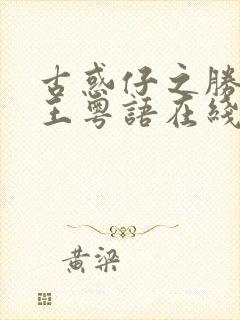 古惑仔之勝
王粵語在綫
黃梁